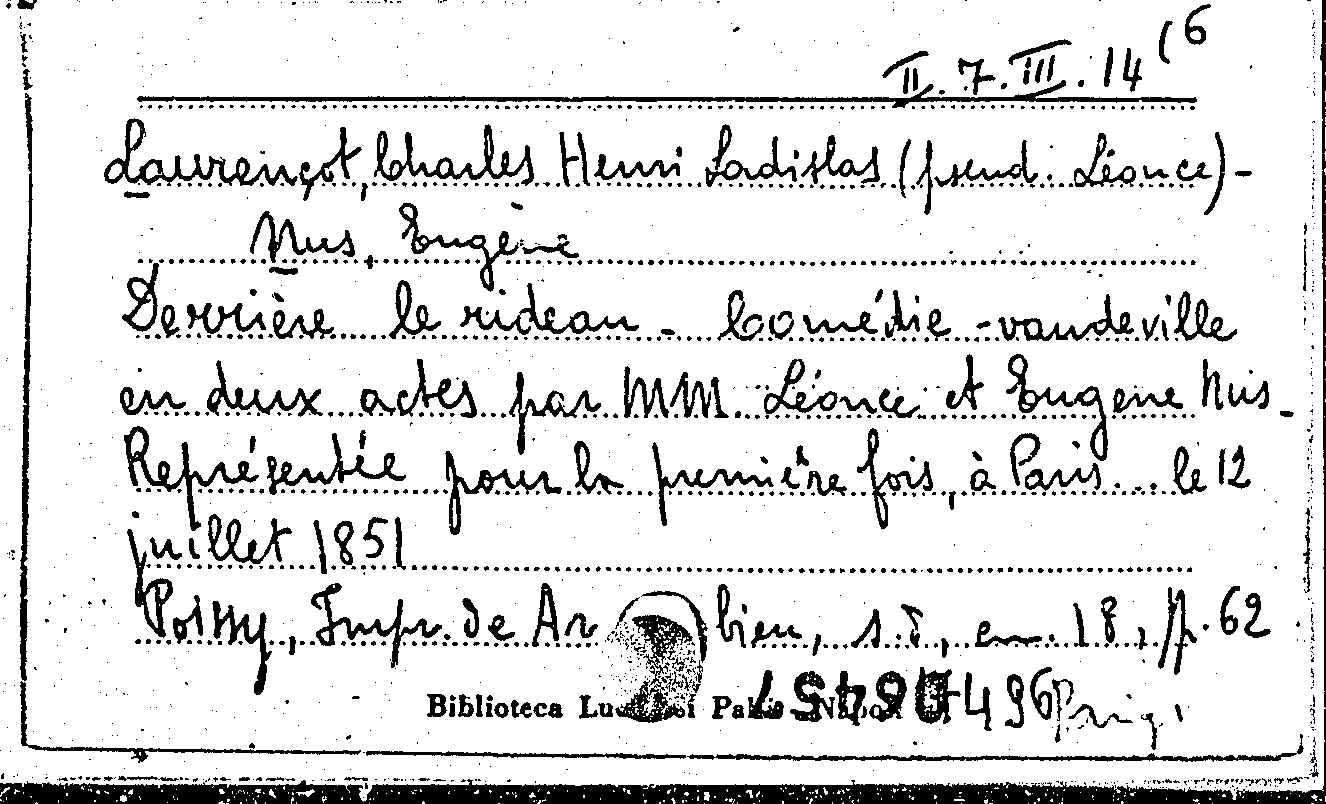 II. 7. III. 14 (6
Laurençot, Charles Henri Ladislas (pseud. Léonce) -
Nus, Eugène
Derrière le rideau - Comédie - vaudeville
en deux actes par MM. Léonce et Eugene Nus -
Représentée pour la première fois, à Paris ... le 12
juillet 1851
Poissy, Impr. de Ar bieu, s.d, cm. 18, p. 62
Biblioteca Lucchesi Palli - Napoli